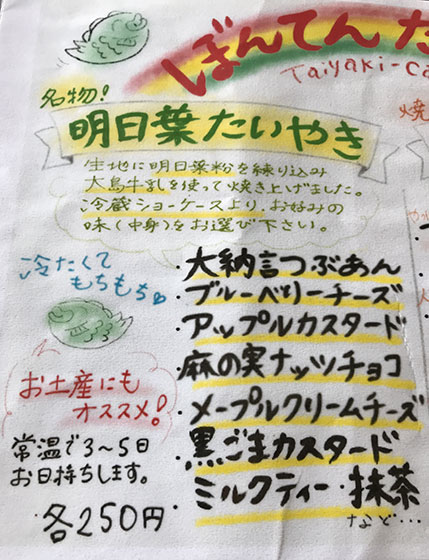 ぼんてん
Taiyaki-Ca
名物!
明日葉たいやき
生地に明日葉粉を練り込み
大島牛乳を使って焼き上げました。
冷蔵ショーケースより、お好みの
味(中身)をお選び下さい。
冷たくて
もちもち
・大納言つぶあん
・ブルーベリーチーズ
・アップルカスタード
・麻の実ナッツチョコ
・メープルクリームチーズ
・黒ごまカスタード
・ミルクティー・抹茶
など…
お土産にも
オススメ!
常温で3~5日
お日持ちします。
・各250円
焼